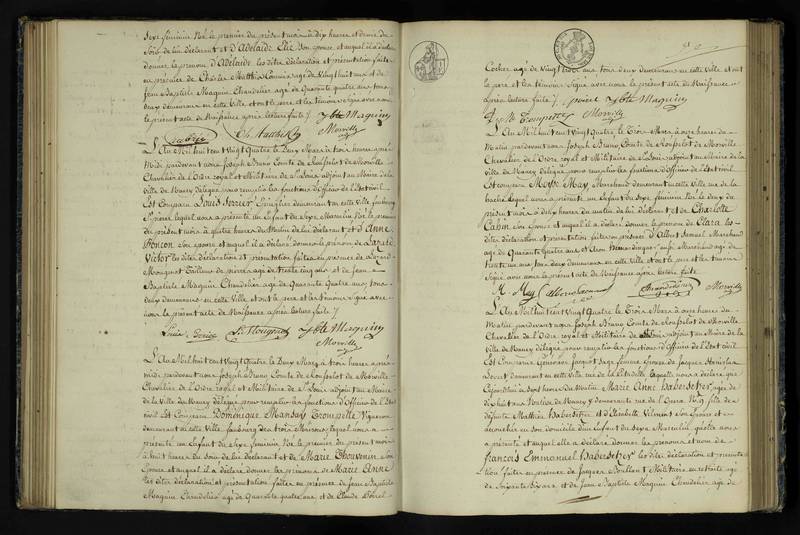 Sexe féminin Né le premier du présent mois à dix heures et demie du
Soir de lui déclarant et d'Adelaide Elie Son épouse et auquel il a déclaré
donner le prénom d'Adelaide les dites déclaration et présentation faites
en présence de Charles Matthis agé de Vingt huit ans et de
Jean Baptiste Maguin Chandelier agé de Quarante quatre ans tous
deux demeurans en cette Ville et ont le pere et les témoins Signé avec nous
le présent acte de Naissance après lecture faite /. Jbte Maguin
Ch Matthis Morville
L'An Mil huit cent Vingt Quatre le Deux Mars à trois heures après
Midi pardevant nous Joseph Bruno Comte de Rousselot de Morville
Chevalier de l'Ordre royal et Militaire de St Louis adjoint au Maire de la
Ville de Nancy délégué pour remplir les fonctions d'Officier de l'Etat civil
Est Comparu Louis Ferrier demeurant en cette Ville faubourg
St Pierre lequel nous a présenté un Enfant du Sexe Masculin Né le premier
du présent mois à quatre heures du Matin de lui déclarant et d'Anne
Poncon Son épouse et auquel il a déclaré donner le prénom de Lazare
Victor les dites déclaration et présentation faites en présence de
Mougnot Tailleur de pierres agé de Trente cinq ans et de Jean
Baptiste Maguin Chandelier agé de Quarante Quatre ans, tous
deux demeurans en cette Ville et ont le pere et les témoins Signé avec
nous le présent acte de Naissance après lecture faite /.
Jbte Maguin
Morville
L'An Mil huit cent Vingt Quatre le Deux Mars à trois heures après
midi pardevant nous Joseph Bruno Comte de Rousselot de Morville
Chevalier de l'Ordre royal et Militaire de St Louis adjoint au Maire
de la Ville de Nancy délégué pour remplir les fonctions d'Officier de l'Etat
civil Est Comparu Dominique Mansuy Troupelle Vigneron
demeurant en cette Ville faubourg des trois Maisons lequel nous a
présenté un Enfant du Sexe féminin Né le premier du présent mois
à huit heures du Soir de lui déclarant et de Marie Thouvenin Son
Epouse et auquel il a déclaré donner les prénoms de Marie Anne
les dites déclaration et présentation faites en présence de Jean Baptiste
Maguin Chandelier agé de Quarante quatre ans et de Claude
Cocher agé de Vingt trois ans tous deux demeurans en cette Ville et ont
le pere et les témoins Signé avec nous le présent acte de Naissance
après lecture faite /. Jbte Maguin
Morville
L'An Mil huit cent Vingt Quatre le Trois Mars à onze heures du
Matin pardevant nous Joseph Bruno Comte de Rousselot de Morville
Chevalier de l'Ordre royal et Militaire de St Louis adjoint au Maire de la
Ville de Nancy délégué pour remplir les fonctions d'Officier de l'Etat civil
Est comparu Moyse May Marchand demeurant en cette Ville rue de la
hache lequel nous a présenté un Enfant du Sexe féminin Né le deux du
présent mois à deux heures du matin de lui déclarant et de Charlotte
Cahin Son épouse et auquel il a déclaré donner le prénom de Clara les
dites déclaration et présentation faites en présence d'Albert Samuel Marchand
agé de Quarante Quatre ans et d'Aron Marchand agé de
trente un ans tous deux demeurans en cette Ville et ont le pere et les témoins
Signé avec nous le présent acte de Naissance après lecture faite
M. May Morville
L'An Mil huit cent Vingt Quatre le Trois Mars à onze heures du
Matin pardevant nous Joseph Bruno Comte de Rousselot de Morville
Chevalier de l'Ordre royal et Militaire de St Louis adjoint au Maire de la
Ville de Nancy délégué pour remplir les fonctions d'Officier de l'Etat civil
Est Comparue Sage femme Epouse de Jacques
demeurant en cette Ville rue de laquelle nous a déclaré que
Aujourd'hui à sept heures du Matin Marie Anne Habersetzer agée de
dix huit ans Native de Nancy y demeurante rue de l'Opera No 9 fille de
défunts Matthis Habersetzer et d'Elisabeth Son épouse est
accouchée en son domicile d'un Enfant du Sexe Masculin qu'elle nous
a présenté et auquel elle a déclaré donner les prénoms et nom de
francois Emmanuel Habersetzer les dites déclaration et présenta
tion faites en présence de Jacques Militaire en retraite agé
de Soixante Six ans et de Jean Baptiste Maguin Chandelier agé de